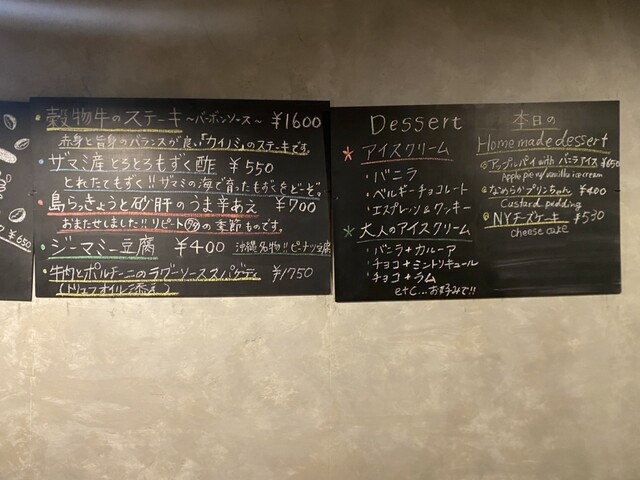 ¥650
穀物牛のステーキ ～バーボンソース～ ¥1600
赤身と旨身のバランスが良い「カイノミ」のステーキです
ザマミ産とろとろもずく酢 ¥550
とれたてもずく!!ザマミの海で育ったもずくをどーぞ
島らっきょうと砂肝のうま辛あえ ¥700
おまたせしました!!リピト の季節ものです。
ジーマミー豆腐 ¥400 沖縄名物!!ピーナツ豆腐
牛肉とポルチーニのラグーソーススパゲティ ¥1750
(トリュフオイル添え)
Dessert
アイスクリーム
・バニラ
・ベルギーチョコレート
・エスプレッソ&クッキー
大人のアイスクリーム
・バニラ+カルーア
・チョコ+ミントリキュール
・チョコ+ラム
etc...お好みで!!
本日の
Homemade dessert
アップルパイ with バニラアイス
Apple pie w/ vanilla ice cream
なめらかプリンちゃん ¥400
Custard pudding
NYチーズケーキ ¥530
cheese cake